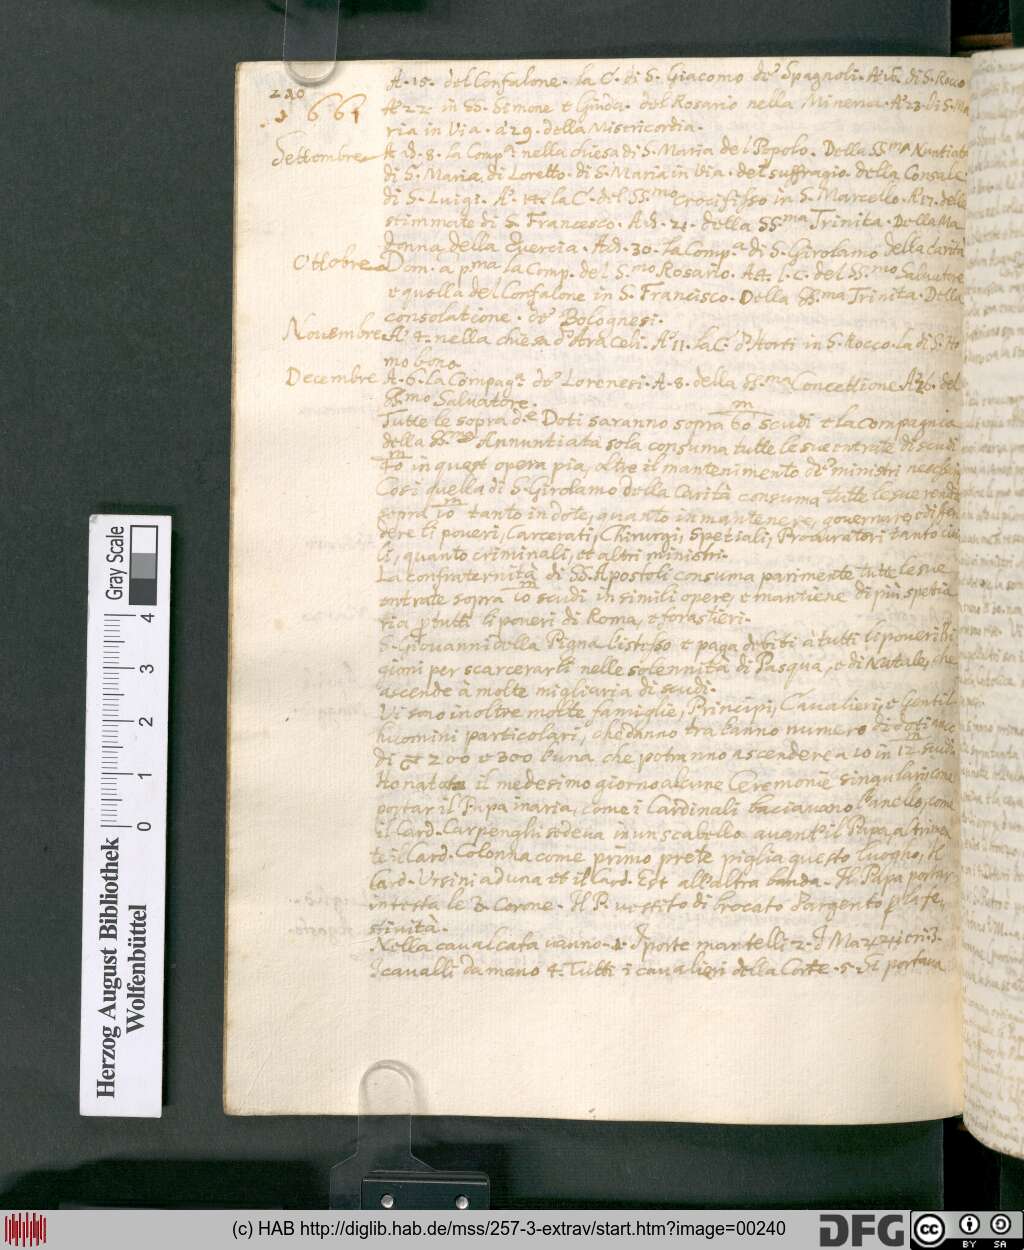 A. 15. del Confalone. la C. di S. Giacomo de' Spagnoli. A 16. di S. Rocco
240
A 22. in SS. Simone e Giuda. del Rosario nella Minerva. A 23. di S. Ma
1661
ria in Via. à 29. della Misericordia.
Settembre A d. 8. la Comp.ª nella chiesa di S. Maria del Popolo. Della SS.ma Nuntiata
di S. Maria di Loretto. di S. Maria in Via. del suffragio. della Consola
di S. Luigi. A. 14. la C. del SS.mo Crocifisso in S. Marcello. A 17. delle
stimmate di S. Francesco. A d. 21. della SS.ma Trinità. Della Ma
donna della Quercia. A d. 30. la Comp.ª di S. Girolamo della Carità
Ottobre Dom. à p.ma la Comp. del S.mo Rosario. A la C. del SS.mo Salvatore
e quella del Confalone in S. Francisco. Della SS.ma Trinita. Della
consolatione. de' Bolognesi.
Novembre A. 4. nella chiesa d'Ara Celi. A 11. la C. d'Horti in S. Rocco. la di S. Ho
mo bono
Decembre A. 6. la Compag.ª de' Lorenesi. A. 8. della SS.ma Concettione A 26. del
SS.mo Salvatore.
Tutte le sopra d.e Doti saranno sopra 60 m scudi e la compagnia
della SS.ma Annuntiata sola consuma tutte le sue entrate di scudi
40 m in quest opera pia, oltre il mantenimento de' ministri
Cosi quella di S. Girolamo della Carità consuma tutte le sue rendite
sopra 10 m tanto in dote, quanto in mantenere, governare, e difen
dere li poveri, Carcerati, Chirurgi, Spetiali, Procuratori tanto civi
li, quanto criminali, et altri ministri.
La confraternità di SS. Apostoli consuma parimente tutte le sue
entrate sopra 10 m scudi in simili opere, e mantiene di più spetia
ria p tutti li poveri di Roma, e forastieri.
S. Giovanni della Pigna l'istesso e paga debiti à tutti li poveri Pri
gioni per scarcerarli nelle solennità di Pasqua, e di Natale, che
ascende à molte migliaria di scudi.
Vi sono inoltre molte famiglie, Principi, Cavalieri, e Gentil
huomini particolari, che danno tra l'anno numero di doti anco
di et 200 e 300 l'una che potranno ascendere a 10 in 12 m scudi
Ho notato il medesimo giorno alcune Ceremonie singulari, come
portar il Papa in aria, come i Cardinali baciavano l'anello, come
il Card. Carpenghi sedeva in un scabello avanti il Papa,
te il Card. Colonna come primo prete piglia questo luogho, il
Card. Ursini ad una et il Card. Est all'altra banda. Il Papa portar
in testa le 3. Corone. Il P. vestito di brocato d'argento p la fe,
stività.
Nella cavalcata vanno. 1. I porte mantelli 2. I Mazzieri. 3.
I cavalli da mano 4. Tutti i cavalieri della Corte. 5. Si portava
Herzog August Bibliothek
Wolfenbüttel
Gray Scale
0 1 2 3 4
(c) HAB http://diglib.hab.de/mss/257-3-extrav/start.htm?image=00240
DFG
cc BY SA